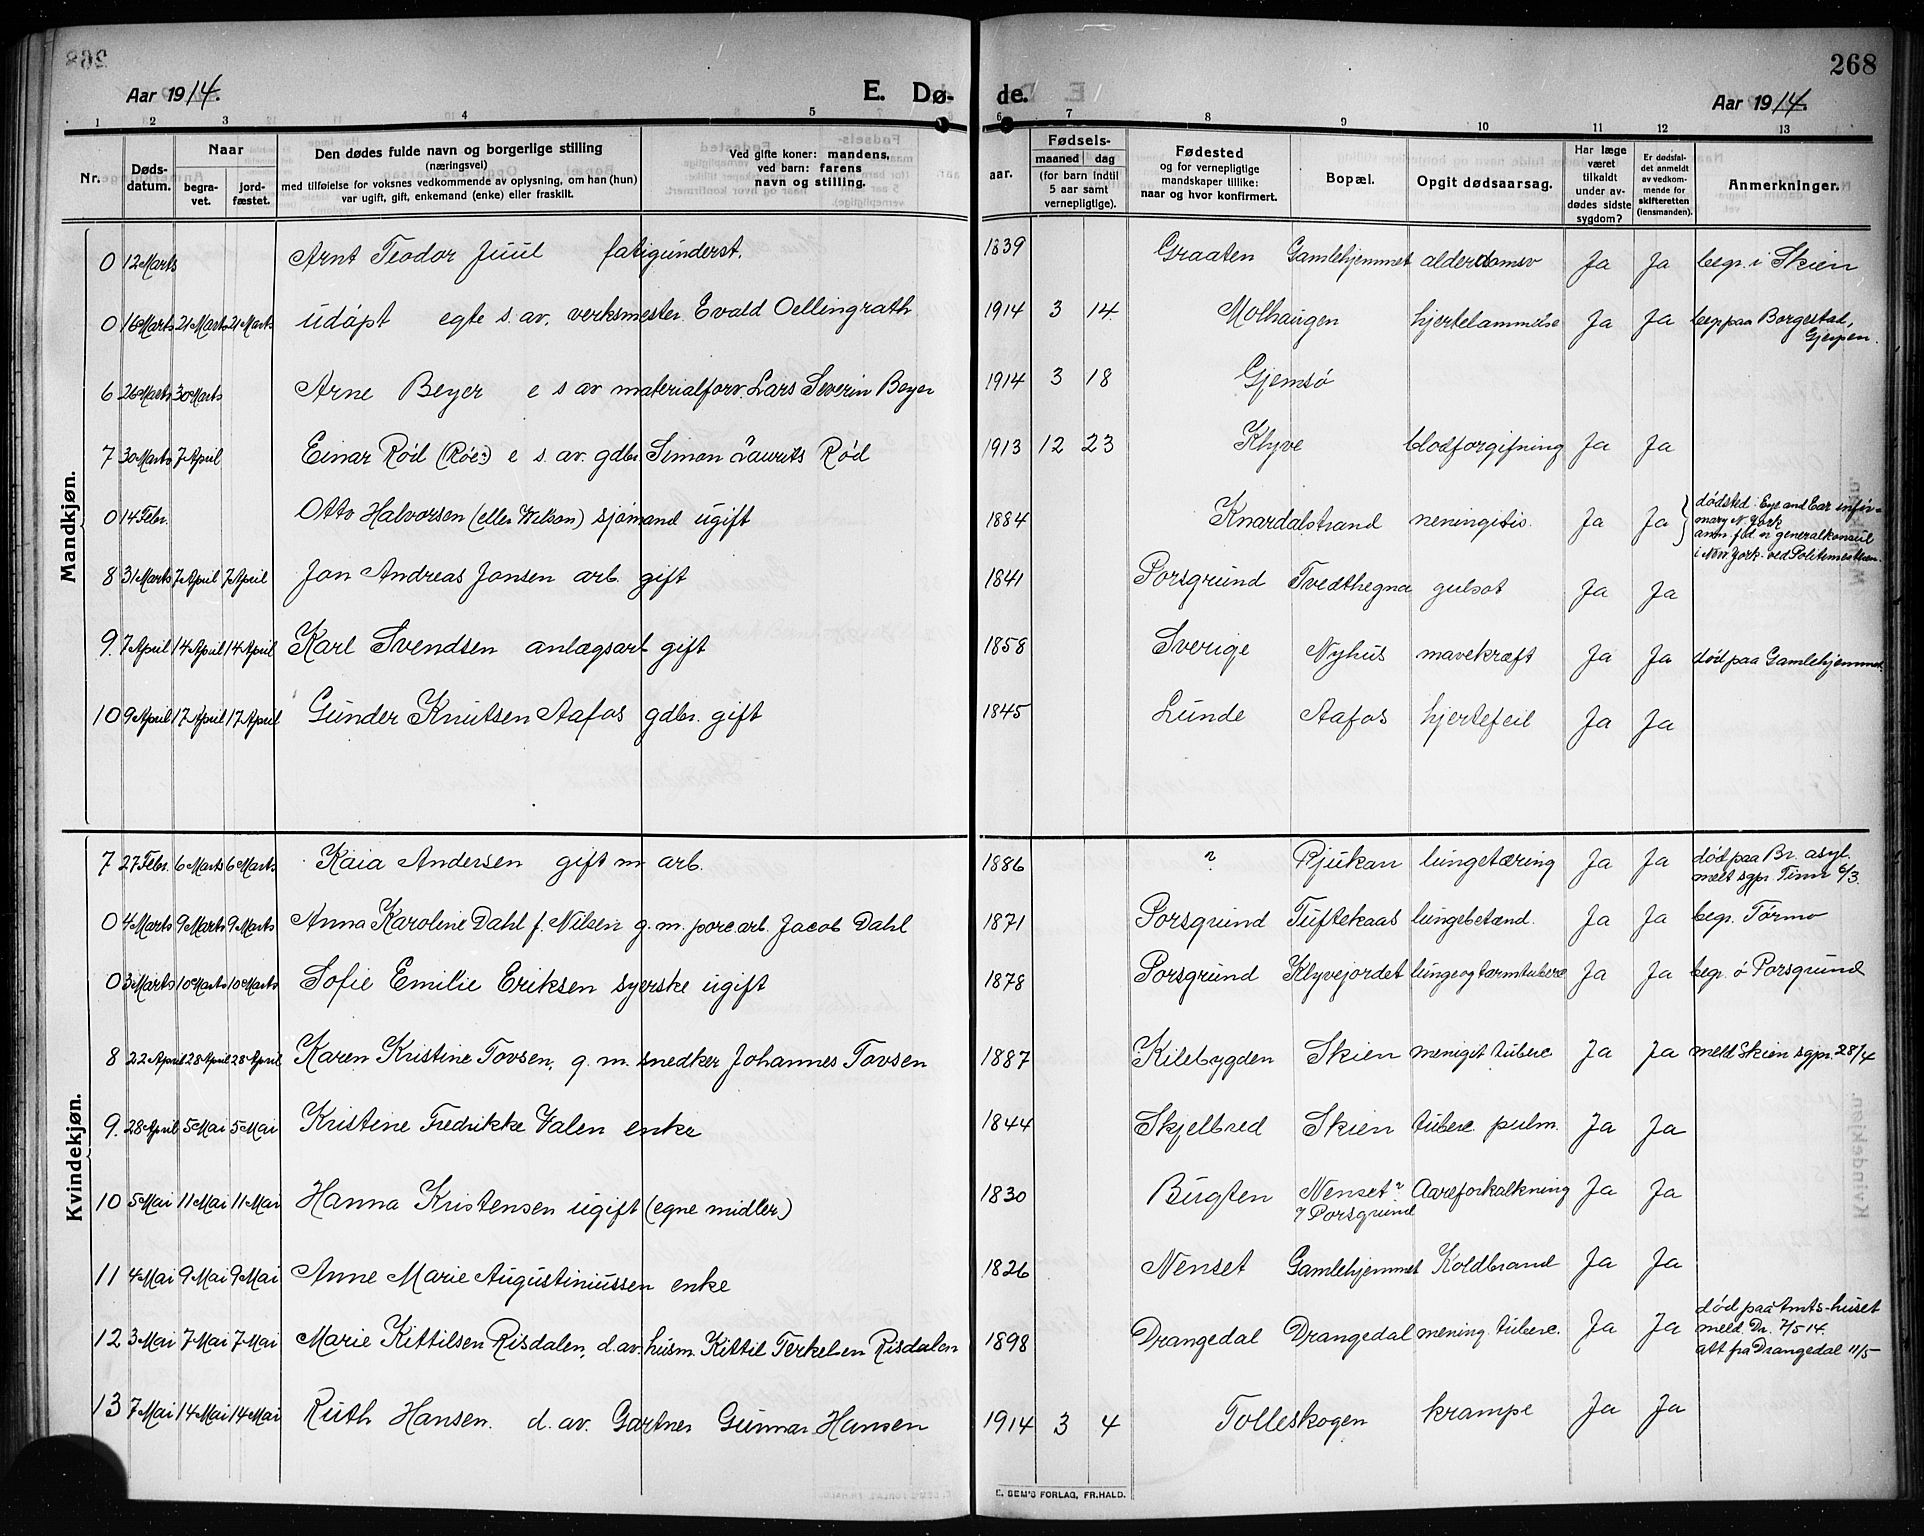 268
Aar 1914. E. Dø- de. Aar 1914.
1 2 3 4 5 6 7 8 9 10 11 12 13
Nr. Døds-datum. Naar begra-vet. jord-fæstet. Den dødes fulde navn og borgerlige stilling (næringsvei) med tilføielse for voksnes vedkommende av oplysning, om han (hun) var ugift, gift, enkemand (enke) eller fraskilt. Ved gifte koner: mandens, ved barn: farens navn og stilling. aar. Fødsels- maaned dag (for barn indtil 5 aar samt vernepligtige). Fødested og for vernepligtige mandskaper tillike: naar og hvor konfirmert. Bopæl. Opgit dødsaarsag. Har læge været tilkaldt under av-dødes sidste sygdom? Er dødsfal-det anmeldt av vedkom-mende for skifteretten (lensmanden). Anmerkninger.
Mandkjøn.
0 12 Marts Arnt Teodor Juul fatigunderst. 1839 Graaten Gamlehjemmet alderdomsv Ja Ja begr. i Skien
0 16 Marts 21 Marts 21 Marts udøpt egte s. av. verksmester Evald Oellingrath 1914 3 14 Molhaugen hjertelammelse Ja Ja begr paa Borgestad, Gjerpen.
6 26 Marts 30 Marts Arne Beyer e s av materialforv. Lars Severin Beyer 1914 3 18 Gjemsø
7 30 Marts 7 April Einar Rød (Røe?) e s. av. gdbr Simon Laurits Rød 1913 12 23 Klyve blodforgifning Ja Ja
0 14 Febr. Otto Halvorsen (eller Wilson) sjømand ugift 1884 Knardalstrand neningitis. Ja Ja } dødsted: Eye and Ear infir-mary N. York anm. fød. n generalkonsul i New York. ved Politimesteren.
8 31 Marts 7 April 7 April Jan Andreas Jansen arb. gift 1841 Porsgrund Tvedthegna gulsot Ja Ja
9. 7 April 14 April 14 April Karl Svendsen anlægsarb gift 1858 Sverige Nyhus mavekræft Ja Ja død paa Gamlehjemmet.
10 9 April 17 April 17 April Gunder Knutsen Aafos gdbr. gift 1845 Lunde Aafos hjertefeil Ja Ja
Kvindekjøn.
7 27 Febr. 6 Marts 6 Marts Kaia Andersen gift m arb. 1886 ? Rjukan lungetæring Ja Ja død paa Br. asyl. melt sgpr. Tinn 6/3.
0 4 Marts 9 Marts 9 Marts Anna Karoline Dahl f. Nilsen g. m. porc. arb. Jacob Dahl 1871 Porsgrund Tuftekaas lungebetænd. Ja Ja begr. Tørmo
0 3 Marts 10 Marts 10 Marts Sofie Emilie Eriksen syerske ugift 1878 Porsgrund Klyvejordet lunge og tarmtuberc Ja Ja begr. ø Porsgrund
8 22 April 28 April 28 April Karen Kristine Tovsen, g. m. snedker Johannes Tovsen 1887 Kilebygden Skien menigit tuberc Ja Ja meld Skien sgpr. 28/4
9. 28 April 5 Mai 5 Mai Kristine Fredrikke Valen enke 1844 Skjelbred Skien tuberc. pulm. Ja Ja
10 5 Mai 11 Mai 11 Mai Hanna Kristensen ugift (egne midler.) 1830 Bugten Nenset n/ Porsgrund Aareforkalkning Ja Ja
11 4 Mai 9 Mai 9 Mai Anne Marie Augustiniussen enke 1826 Nenset Gamlehjemmet Koldbrand Ja Ja
12 3 Mai 7 Mai 7 Mai Marie Kittilsen Risdalen, d. av. husm. Kittil Terkelsen Risdalen 1898 Drangedal Drangedal mening. tuberc. Ja Ja død paa Amts-huset meld. Dr. 7/5 14. att fra Drangedal 11/5
13 7 Mai 14 Mai 14 Mai Ruth Hansen. d. av. Gartner Gunnar Hansen 1914 3 4 Tolleskogen krampe Ja Ja
E. SEM'S FORLAG, FR.HALD.